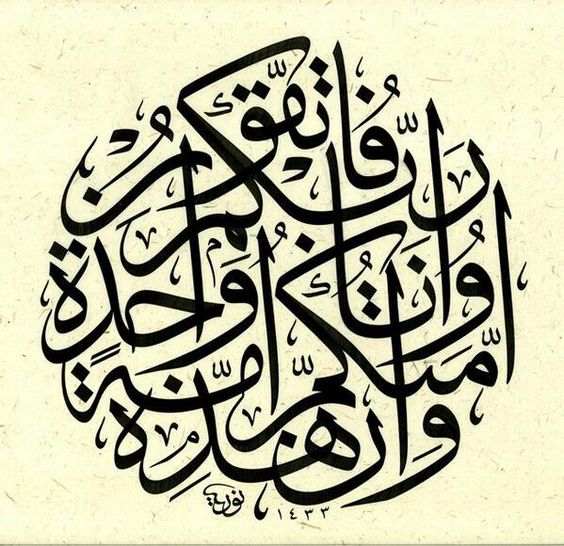 وَإِنَّ هَذِهِ أُمَّتُكُمْ أُمَّةً وَاحِدَةً وَأَنَا رَبُّكُمْ فَاتَّقُونِ
نورية ١٤٣٣